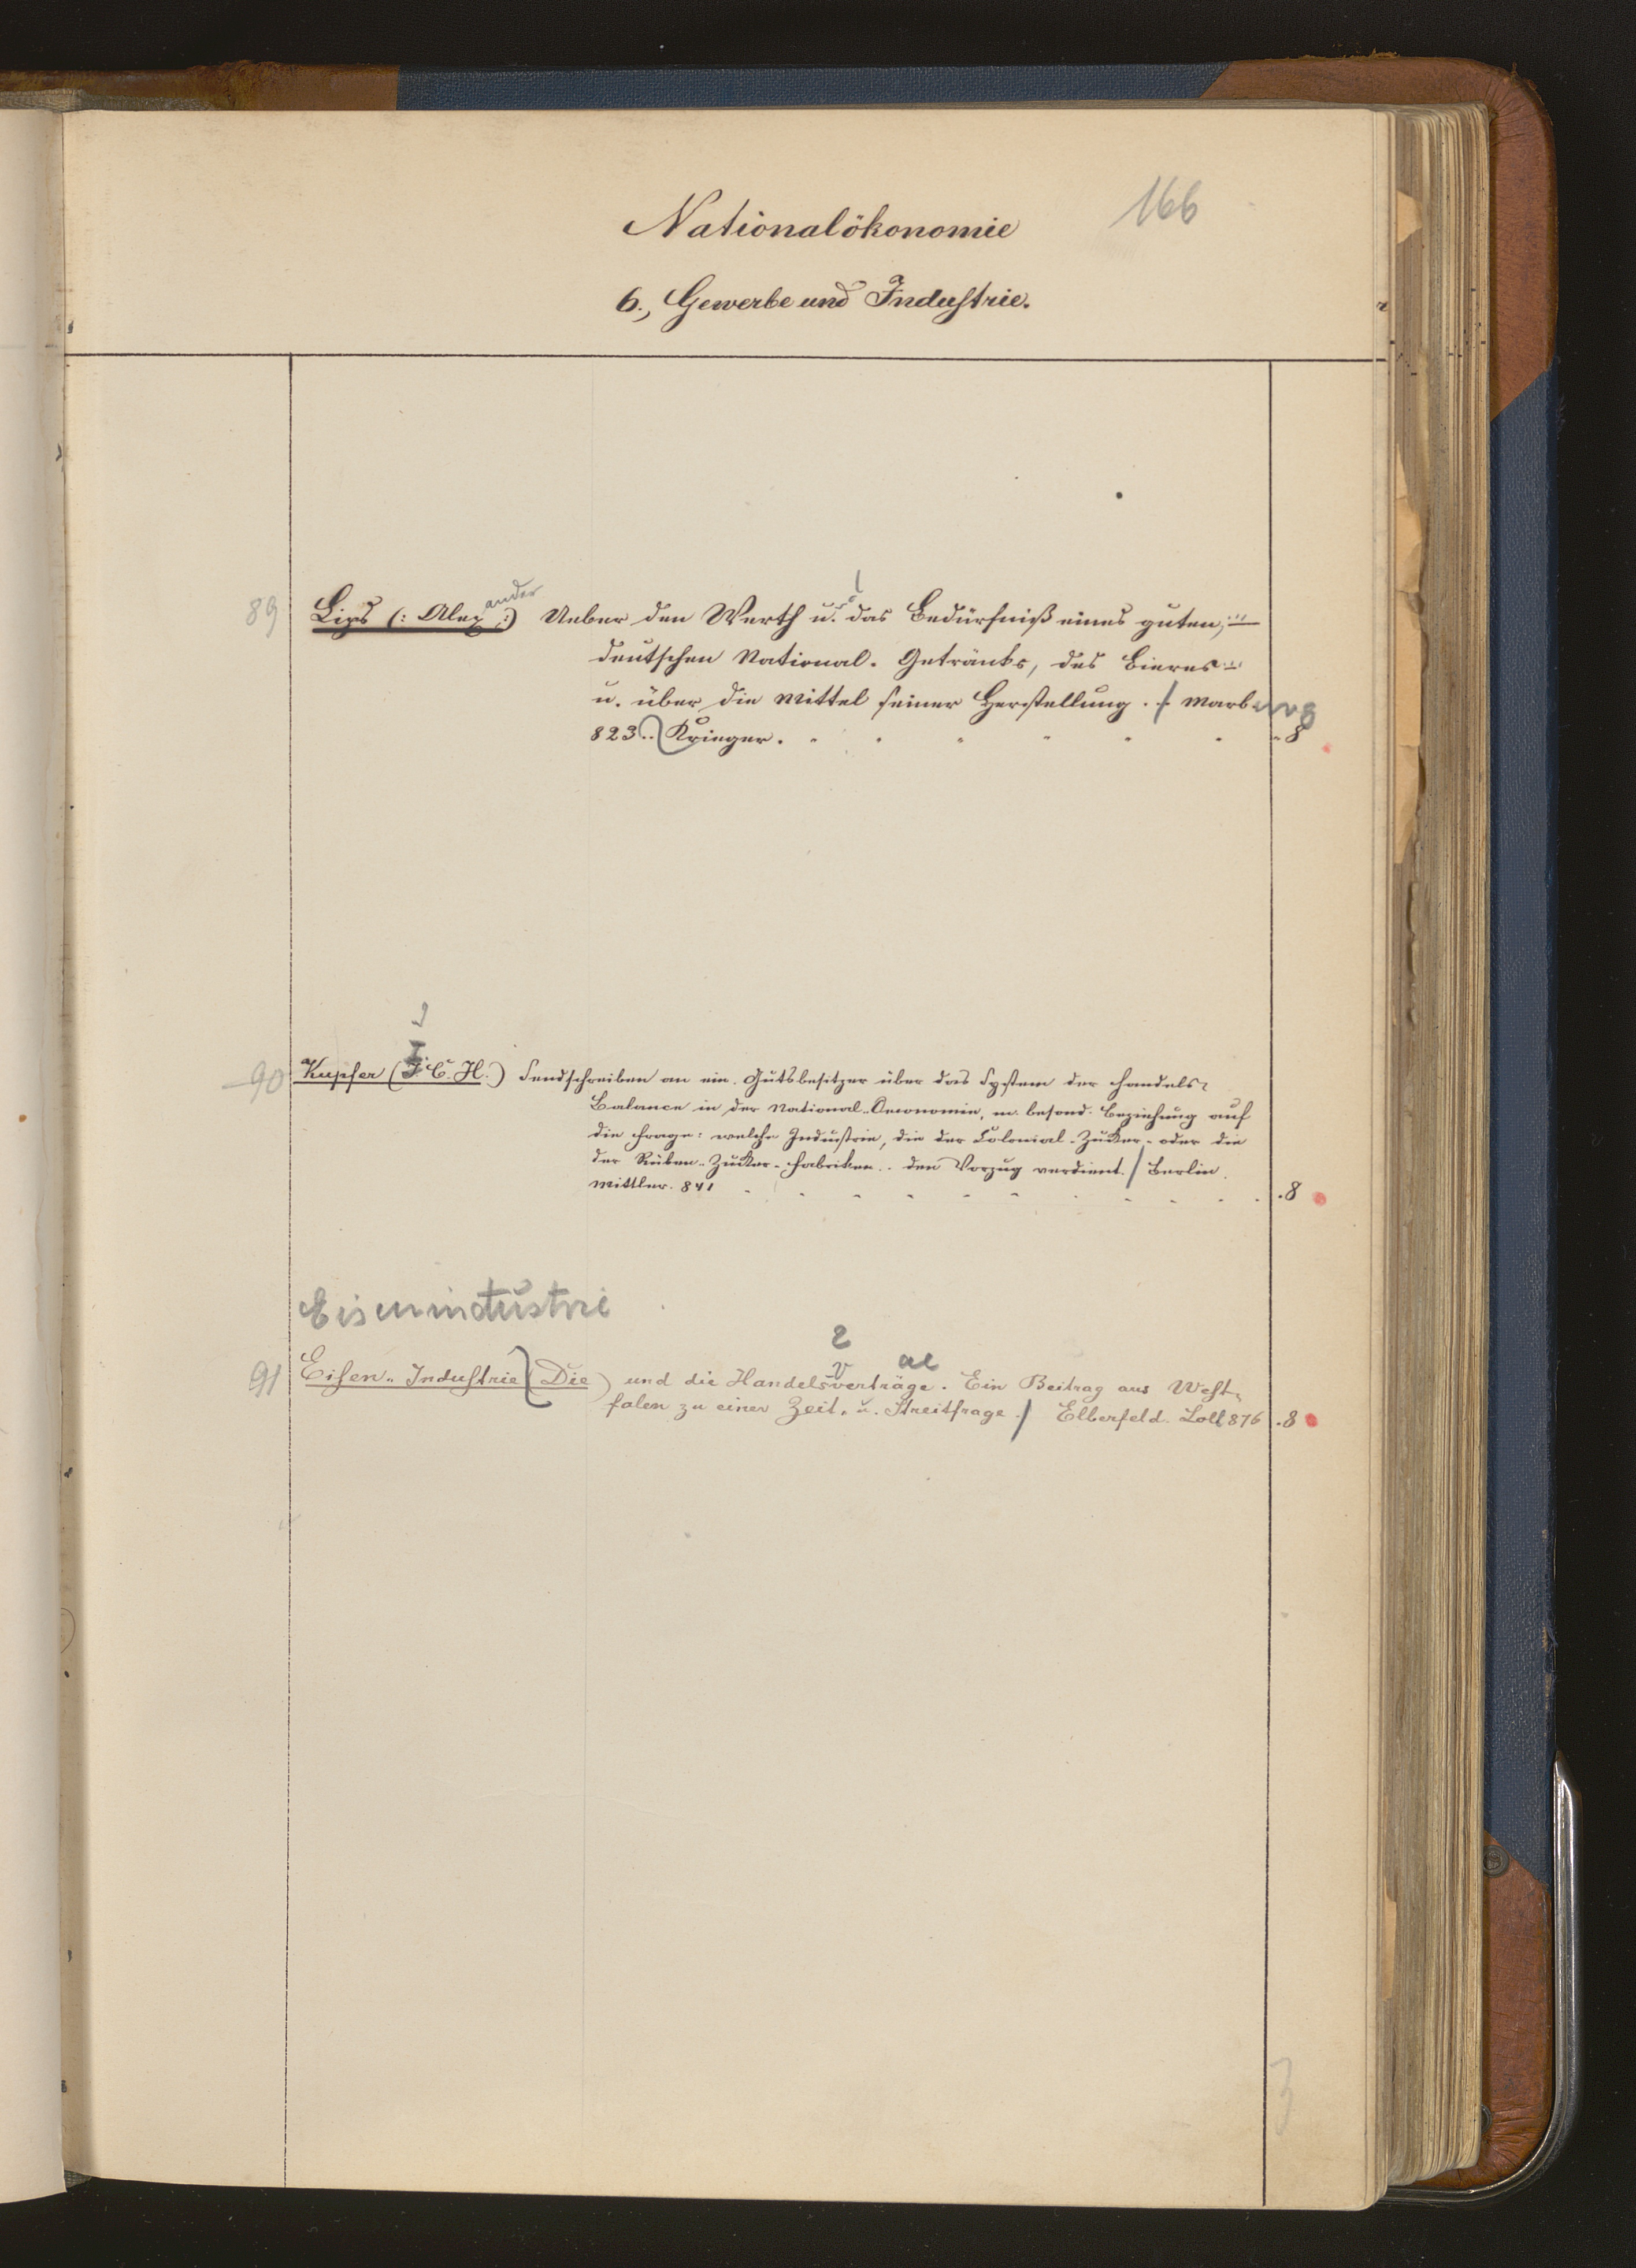 166
Nationalökonomie
6., Gewerbe und Industrie.
89 Lips (: Alexander :) Ueber den Werth u. das Bedürfniß eines guten,
deutschen National-Getränks, des Bieres
u. über die Mittel seiner Herstellung. / Marburg
823.. Krieger. 8
90 Kupfer (I. C. H.) Sendschreiben an ein. Gutsbesitzer über das System der Handels-
Balance in der National-Oeconomie, m. besond. Beziehung auf
die Frage: welche Industrie, die der Colonial-Zucker- oder die
der Rüben-Zucker-Fabriken.. den Vorzug verdient. / Berlin.
Mittler. 841 . 8
Eisenindustrie
2 ae
91 Eisen-Industrie (Die) und die Handelsverträge. Ein Beitrag aus West-
falen zu einer Zeit- u. Streitfrage. / Elberfeld. Loll 876 . 8
3